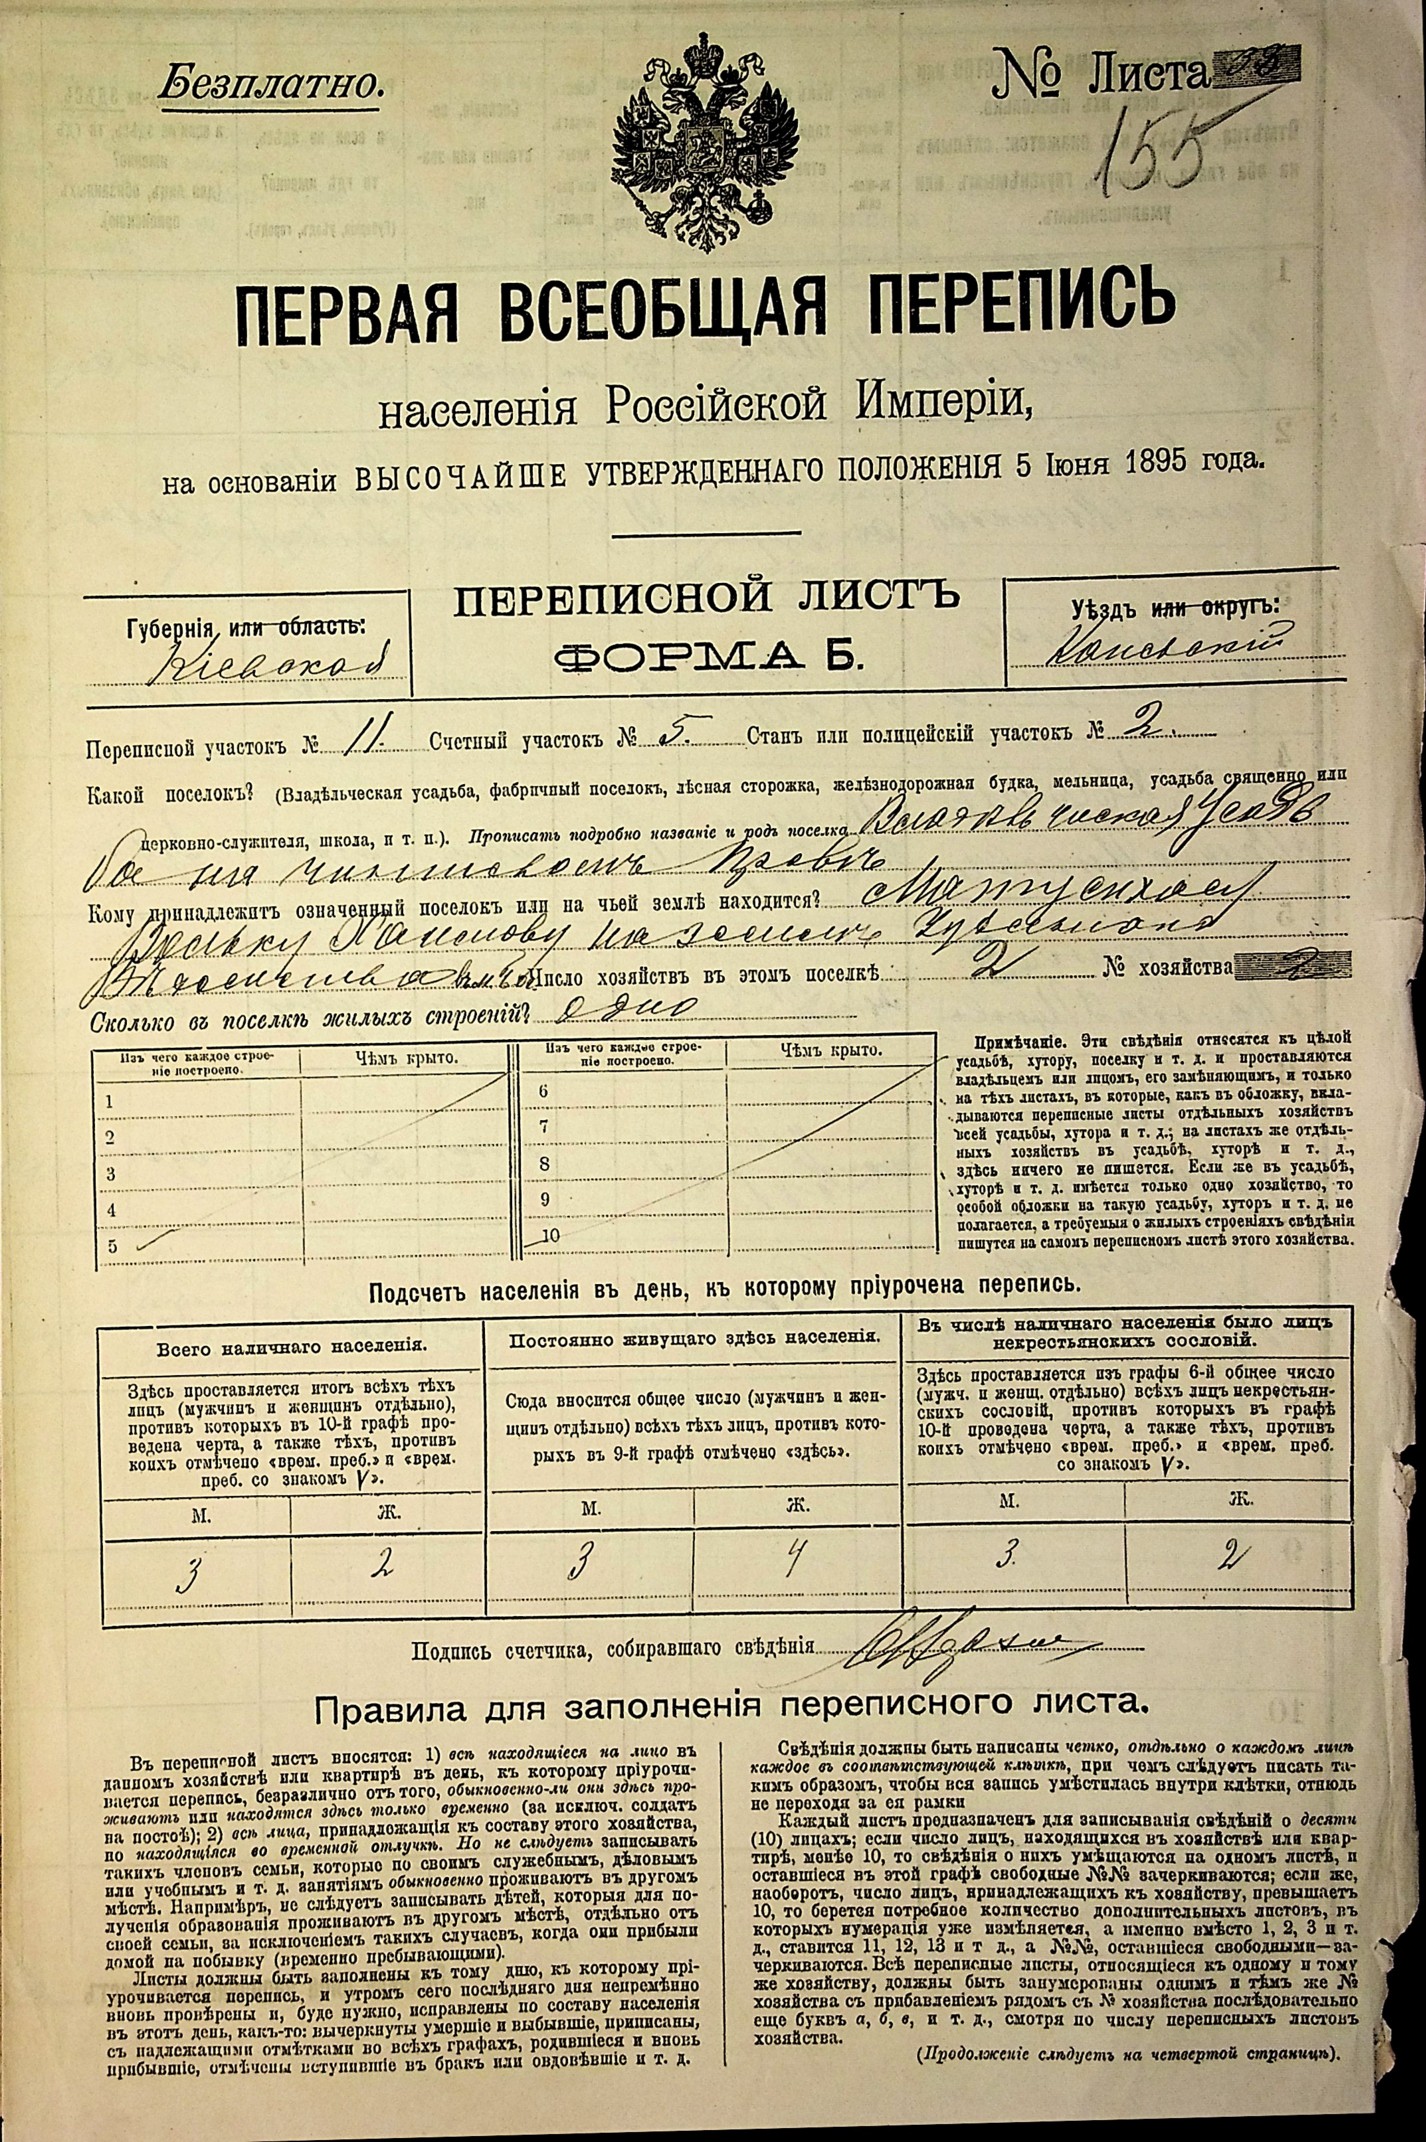 Безплатно.
№ Листа
155
ПЕРВАЯ ВСЕОБЩАЯ ПЕРЕПИСЬ
населенія Россійской Имперіи,
на основаніи ВЫСОЧАЙШЕ УТВЕРЖДЕННАГО ПОЛОЖЕНІЯ 5 Іюня 1895 года.
ПЕРЕПИСНОЙ ЛИСТЪ
ФОРМА Б.
Губернія, или область:
Кіевская
Уѣздъ или округъ:
Каневскій
Переписной участокъ № 11. Счетный участокъ № 5. Станъ или полицейскій участокъ № 2.
Какой поселокъ? (Владѣльческая усадьба, фабричный поселокъ, лѣсная сторожка, желѣзнодорожная будка, мельница, усадьба священно или
церковно-служителя, школа, и т. п.). Прописать подробно названіе и родъ поселка
на чиншевомъ правѣ
Кому принадлежитъ означенный поселокъ или на чьей землѣ находится?
на землѣ
Число хозяйствъ въ этомъ поселкѣ 2 № хозяйства 2
Сколько въ поселкѣ жилыхъ строеній? одно
Изъ чего каждое строе-
ніе построено.
Чѣмъ крыто.
Изъ чего каждое строе-
ніе построено.
Чѣмъ крыто.
1
2
3
4
5
6
7
8
9
10
Примѣчаніе. Эти свѣдѣнія относятся къ цѣлой
усадьбѣ, хутору, поселку и т. д. и проставляются
владѣльцемъ или лицомъ, его замѣняющимъ, и только
на тѣхъ листахъ, въ которые, какъ въ обложку, вкла-
дываются переписные листы отдѣльныхъ хозяйствъ
всей усадьбы, хутора и т. д.; на листахъ же отдѣль-
ныхъ хозяйствъ въ усадьбѣ, хуторѣ и т. д.,
здѣсь ничего не пишется. Если же въ усадьбѣ,
хуторѣ и т. д. имѣется только одно хозяйство, то
особой обложки на такую усадьбу, хуторъ и т. д. не
полагается, а требуемыя о жилыхъ строеніяхъ свѣдѣнія
пишутся на самомъ переписномъ листѣ этого хозяйства.
Подсчетъ населенія въ день, къ которому пріурочена перепись.
Всего наличнаго населенія.
Здѣсь проставляется итогъ всѣхъ тѣхъ
лицъ (мужчинъ и женщинъ отдѣльно),
противъ которыхъ въ 10-й графѣ про-
ведена черта, а также тѣхъ, противъ
коихъ отмѣчено «врем. преб.» и «врем.
преб. со знакомъ V».
М. Ж.
3 2
Постоянно живущаго здѣсь населенія.
Сюда вносится общее число (мужчинъ и жен-
щинъ отдѣльно) всѣхъ тѣхъ лицъ, противъ кото-
рыхъ въ 9-й графѣ отмѣчено «здѣсь».
М. Ж.
3 4
Въ числѣ наличнаго населенія было лицъ
некрестьянскихъ сословій.
Здѣсь проставляется изъ графы 6-й общее число
(мужч. и женщ. отдѣльно) всѣхъ лицъ некрестьян-
скихъ сословій, противъ которыхъ въ графѣ
10-й проведена черта, а также тѣхъ, противъ
коихъ отмѣчено «врем. преб.» и «врем. преб.
со знакомъ V».
М. Ж.
3. 2
Подпись счетчика, собиравшаго свѣдѣнія
Правила для заполненія переписного листа.
Въ переписной листъ вносятся: 1) всѣ находящіеся на лицо въ
данномъ хозяйствѣ или квартирѣ въ день, къ которому пріурочи-
вается перепись, безразлично отъ того, обыкновенно-ли они здѣсь про-
живаютъ или находятся здѣсь только временно (за исключ. солдатъ
на постоѣ); 2) всѣ лица, принадлежащія къ составу этого хозяйства,
но находящіяся во временной отлучкѣ. Но не слѣдуетъ записывать
такихъ членовъ семьи, которые по своимъ служебнымъ, дѣловымъ
или учебнымъ и т. д. занятіямъ обыкновенно проживаютъ въ другомъ
мѣстѣ. Напримѣръ, не слѣдуетъ записывать дѣтей, которыя для по-
лученія образованія проживаютъ въ другомъ мѣстѣ, отдѣльно отъ
своей семьи, за исключеніемъ такихъ случаевъ, когда они прибыли
домой на побывку (временно пребывающими).
Листы должны быть заполнены къ тому дню, къ которому прі-
урочивается перепись, и утромъ сего послѣдняго дня непремѣнно
вновь провѣрены и, буде нужно, исправлены по составу населенія
въ этотъ день, какъ-то: вычеркнуты умершіе и выбывшіе, приписаны,
съ надлежащими отмѣтками во всѣхъ графахъ, родившіеся и вновь
прибывшіе, отмѣчены вступившіе въ бракъ или овдовѣвшіе и т. д.
Свѣдѣнія должны быть написаны четко, отдѣльно о каждомъ лицѣ
каждое въ соотвѣтствующей клѣткѣ, при чемъ слѣдуетъ писать та-
кимъ образомъ, чтобы вся запись умѣстилась внутри клѣтки, отнюдь
не переходя за ея рамки
Каждый листъ предназначенъ для записыванія свѣдѣній о десяти
(10) лицахъ; если число лицъ, находящихся въ хозяйствѣ или квар-
тирѣ, менѣе 10, то свѣдѣнія о нихъ умѣщаются на одномъ листѣ, и
оставшіеся въ этой графѣ свободные №№ зачеркиваются; если же,
наоборотъ, число лицъ, принадлежащихъ къ хозяйству, превышаетъ
10, то берется потребное количество дополнительныхъ листовъ, въ
которыхъ нумерація уже измѣняется, а именно вмѣсто 1, 2, 3 и т.
д., ставится 11, 12, 13 и т д., а №№, оставшіеся свободными—за-
черкиваются. Всѣ переписные листы, относящіеся къ одному и тому
же хозяйству, должны быть занумерованы однимъ и тѣмъ же №
хозяйства съ прибавленіемъ рядомъ съ № хозяйства послѣдовательно
еще буквъ а, б, в, и т. д., смотря по числу переписныхъ листовъ
хозяйства.
(Продолженіе слѣдуетъ на четвертой страницѣ).